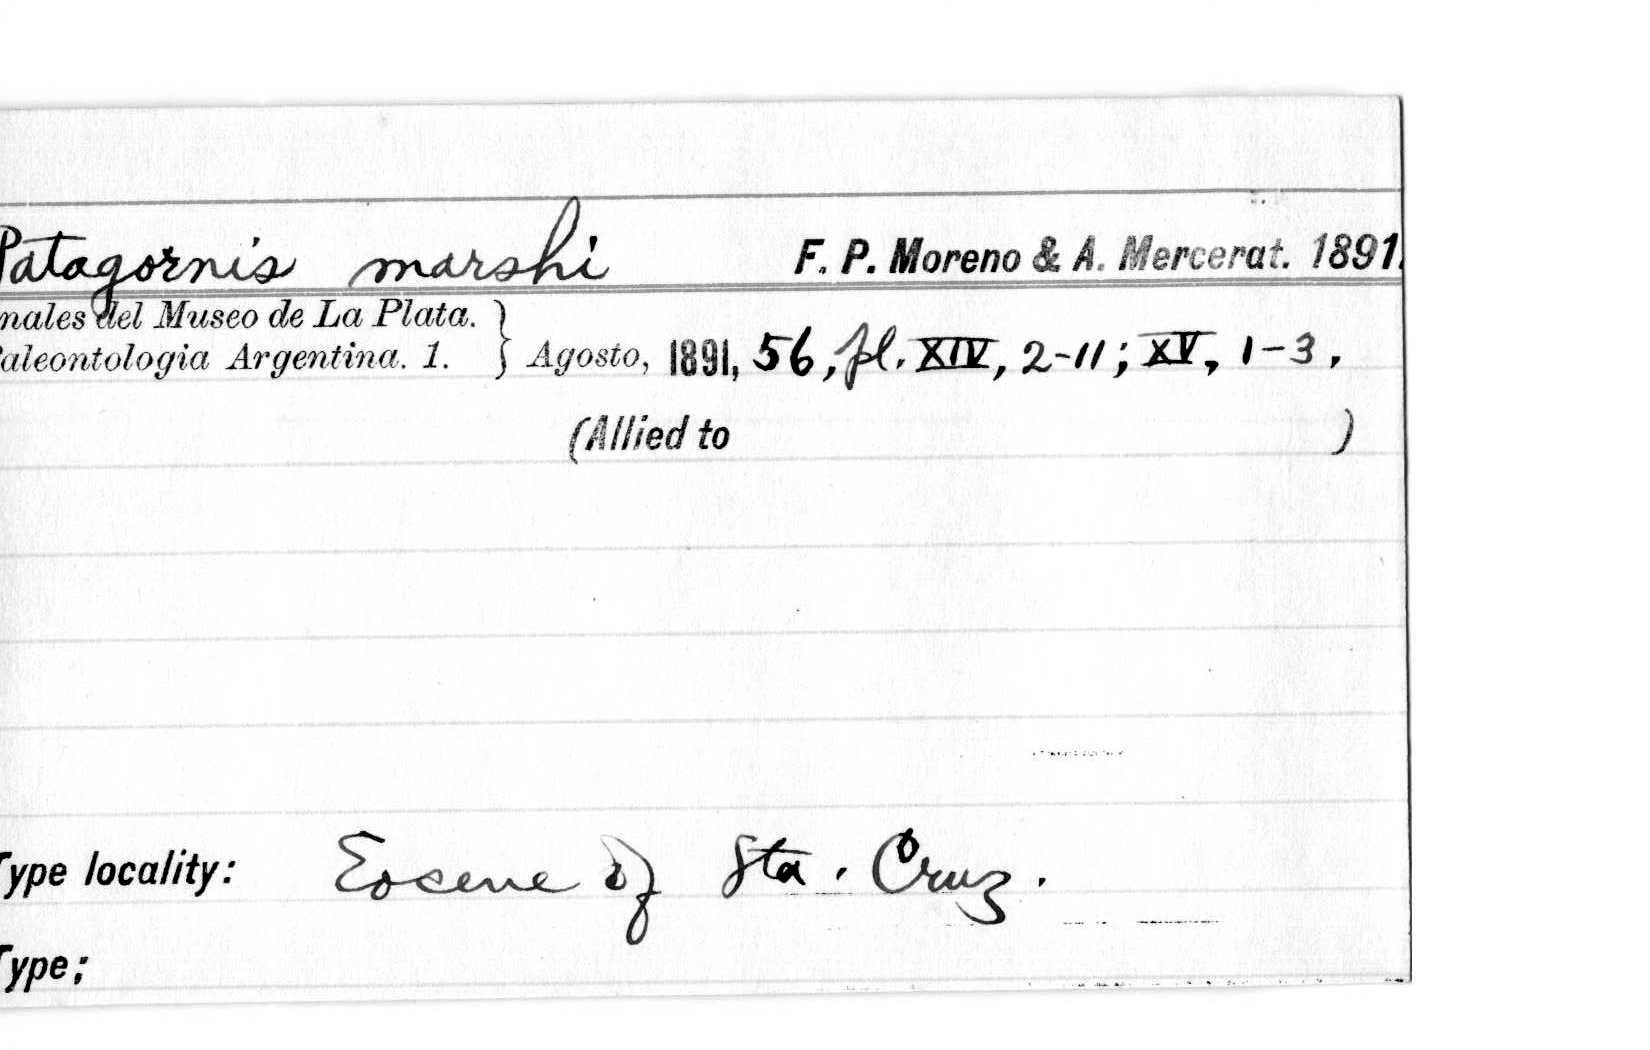 Patagornis marshi F. P. Moreno & A. Mercerat. 1891.
nales del Museo de La Plata.
Paleontologia Argentina. 1. } Agosto, 1891, 56, pl. XIV, 2-11; XV, 1-3,
(Allied to )
Type locality: Eocene of Sta. Cruz.
Type;